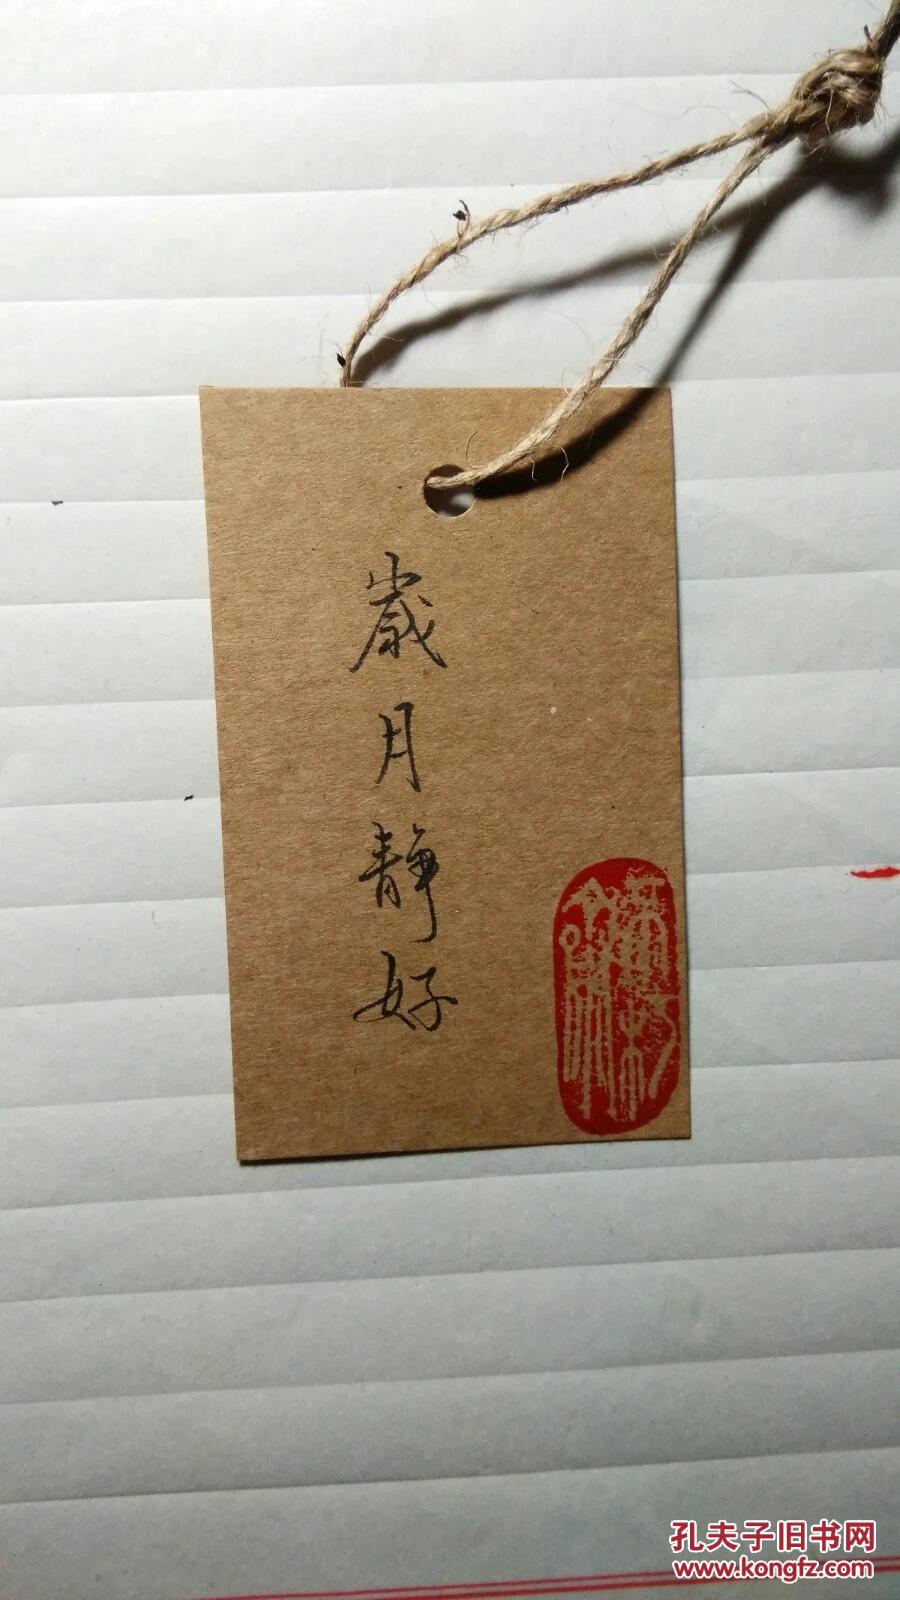 歲月静好
孔夫子旧书网
www.kongfz.com